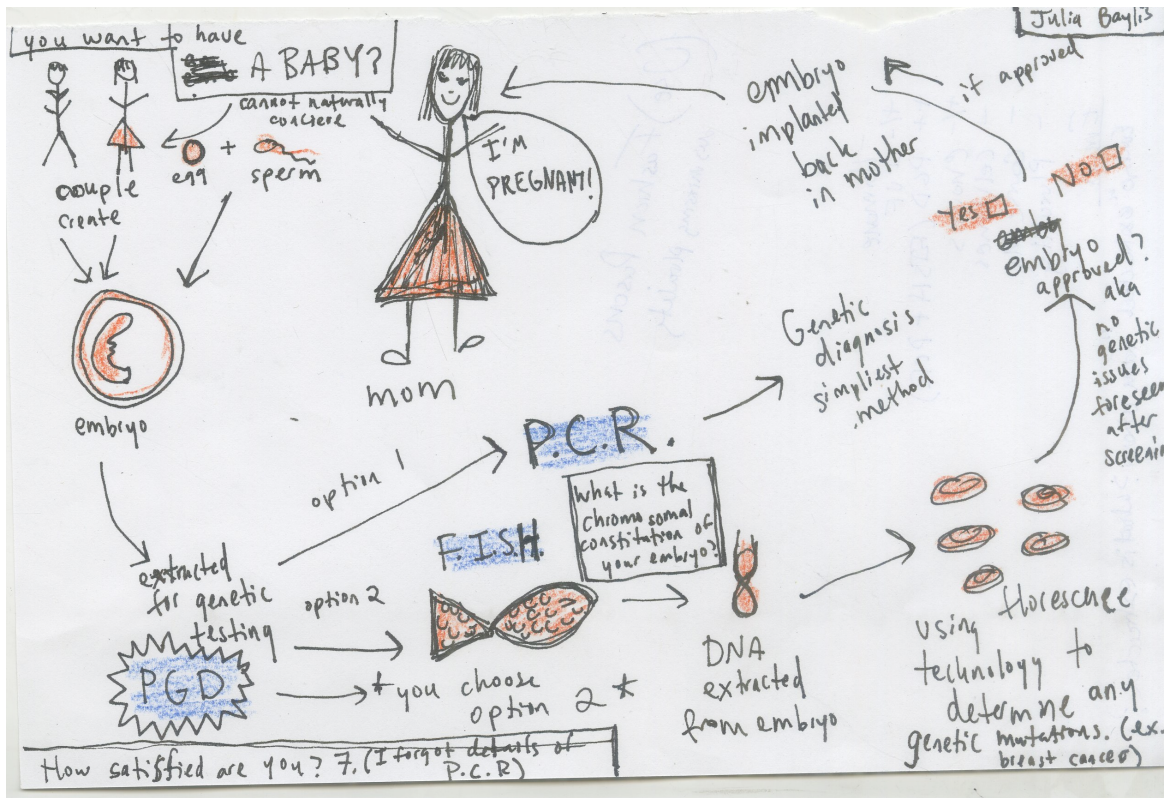 you want to have
A BABY?
cannot naturally
concieve
egg + sperm
couple
create
embryo
mom
I'M
PREGNANT!
embryo
implanted
back
in mother
if approved
Julia Baylis
No
Yes
embryo
approved?
aka
no
genetic
issues
foreseen
after
screenin
Genetic
diagnosis
simpliest
method
P.C.R.
option 1
extracted
for genetic
testing
PGD
option 2
F.I.S.H.
*you choose
option 2*
What is the
chromosomal
constitution of
your embryo?
DNA
extracted
from embryo
using florescnee
technology to
determine any
genetic mutations. (ex.
breast cancer)
How satisfied are you? 7. (I forgot details of
P.C.R)